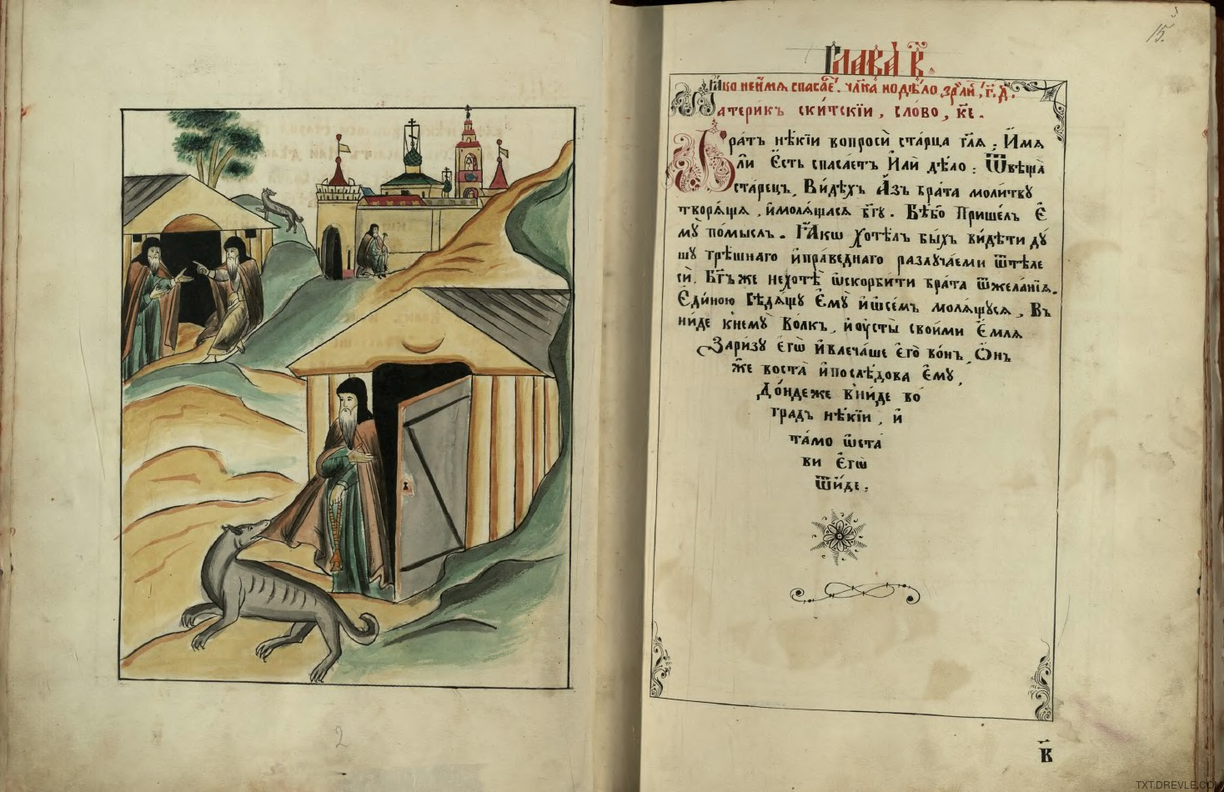 15.
Глава̀ в҃.
Ꙗ҆́кѡ не и҆́мѧ спаса́е. чл҃ка но дѣ́ло,
патери́къ ски́тскїи, сло́во,
Бра́тъ нѣ́кїи вопросѝ ста́рца гл҃ѧ: И҆́мѧ
лѝ є҆́сть спаса́етъ И҆лѝ дѣ́ло: Ѿвѣща̀
ста́рецъ. Ви́дѣхъ А҆́зъ бра́та моли́тву
творѧ́ща, и҆ молѧ́щасѧ бг҃у. Бѣ́ бо прише́лъ Є҆
мꙋ̀ по́мыслъ. Ꙗ҆́кѡ хотѣ́лъ бы́хъ ви́дѣти дꙋ́
шꙋ грѣ́шнаго и҆ пра́веднаго разлꙋча́еми ѿ тѣ́ле
сѝ. Бг҃ъ же не хотѣ̀ ѡ҆скорби́ти бра́та ѿ жела́нїѧ.
Є҆ди́ною сѣдѧ́щꙋ Є҆мꙋ̀ и҆ ѡ҆ се́мъ молѧ́щꙋсѧ, Въ
ни́де к не́мꙋ Во́лкъ, и҆ ᲂу҆сты̀ свои́ми Є҆млѧ
За ри́зꙋ є҆гѡ̀ и҆ влеча́ше є҆го̀ во́нъ, Ѻ҆́нъ
же воста̀ и҆ послѣ́дова Є҆мꙋ̀,
До́ндеже вни́де во
гра́дъ нѣ́кїи, и҆
та́мо ѡ҆ста
ви є҆гѡ̀
ѿи́де:
в҃
2
TXT.DREVLE.COM